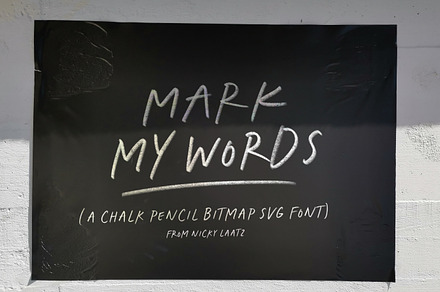 MARK
MY WORDS
(A CHALK PENCIL BITMAP SVG FONT)
FROM NICKY LAATZ